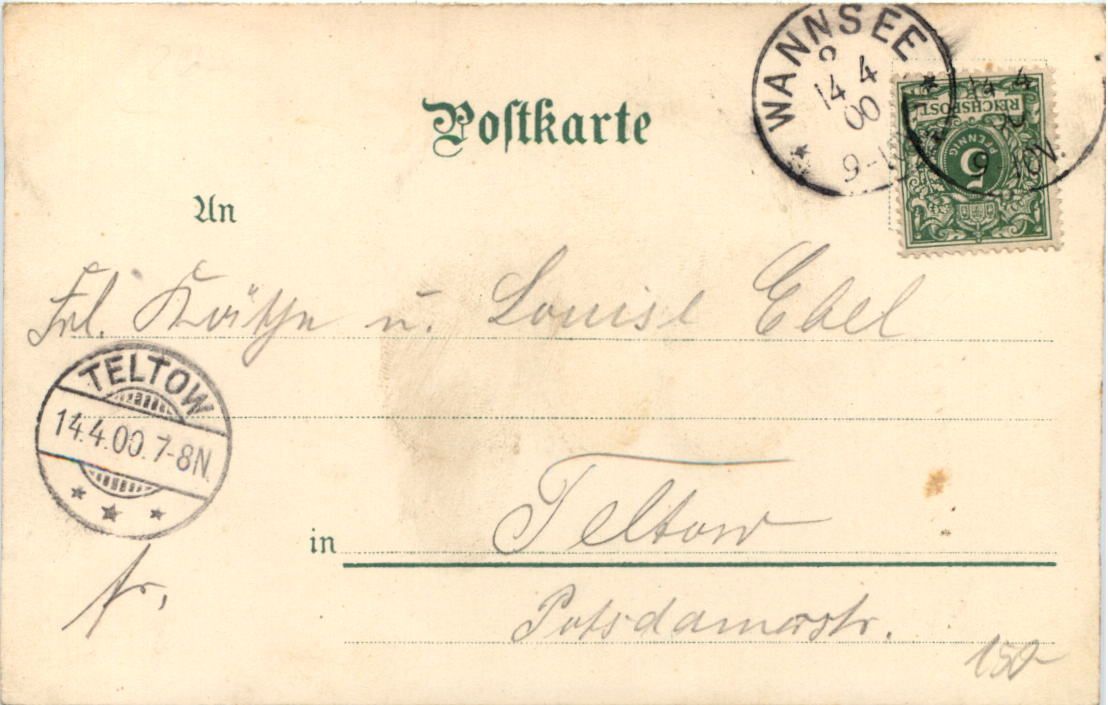 WANNSEE
14 4
00
9-10V.
REICHSPOST
5
PFENNIG
Postkarte
An
Frl. Käthe u. Louise Ebel
TELTOW
14.4.00.7-8N.
in Teltow
Potsdamerstr.
150-